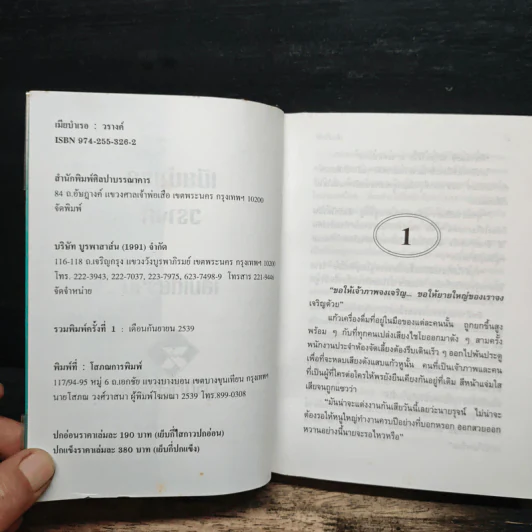 เมียบำเรอ : วรางค์
ISBN 974-255-326-2
สำนักพิมพ์ศิลปาบรรณาคาร
84 ถ.อัษฎางค์ แขวงศาลเจ้าพ่อเสือ เขตพระนคร กรุงเทพฯ 10200
จัดพิมพ์
บริษัท บูรพาสาส์น (1991) จำกัด
116-118 ถ.เจริญกรุง แขวงวังบูรพาภิรมย์ เขตพระนคร กรุงเทพฯ 10200
โทร. 222-3943, 222-7037, 223-7975, 623-7498-9 โทรสาร 221-9446
จัดจำหน่าย
รวมพิมพ์ครั้งที่ 1 : เดือนกันยายน 2539
พิมพ์ที่ : โสภณการพิมพ์
117/94-95 หมู่ 6 ถ.เอกชัย แขวงบางบอน เขตบางขุนเทียน กรุงเทพฯ
นายโสภณ วงศ์วาสนา ผู้พิมพ์โฆษณา 2539 โทร.899-0308
ปกอ่อนราคาเล่มละ 190 บาท (เย็บกี่ไสกาวปกอ่อน)
ปกแข็งราคาเล่มละ 380 บาท (เย็บกี่ปกแข็ง)
1
"ขอให้เจ้าภาพจงเจริญ... ขอให้นายใหญ่ของเราจง
เจริญด้วย"
แก้วเครื่องดื่มที่อยู่ในมือของแต่ละคนนั้น ถูกยกขึ้นสูง
พร้อม ๆ กับที่ทุกคนเปล่งเสียงไชโยออกมาดัง ๆ สามครั้ง
พนักงานประจำห้องจัดเลี้ยงต้องรีบเดินเร็ว ๆ ออกไปพ้นประตู
เพื่อที่จะหลบเสียงดังแสบแก้วหูนั้น คนที่เป็นเจ้าภาพและคน
ที่เป็นผู้ที่ใครต่อใครให้พรยังยืนเคียงกันอยู่ที่เดิม สีหน้าแจ่มใส
เสียจนถูกแซวว่า
"มันน่าจะแต่งงานกันเสียวันนี้เลยว่ะนายรุจน์ ไม่น่าจะ
ต้องรอให้หนูใหญ่ทำงานครบปีอย่างที่บอกหรอก ออกสวยออก
หวานอย่างนี้นายจะรอไหวหรือ"